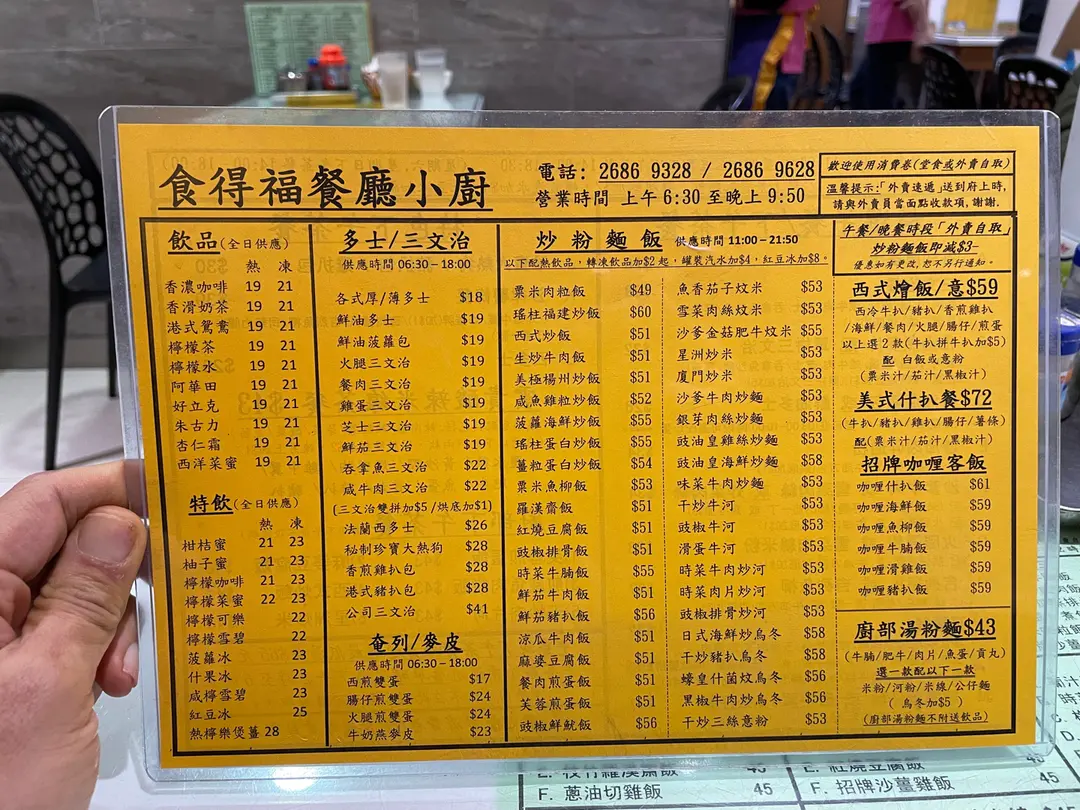 食得福餐廳小廚
電話: 2686 9328 / 2686 9628
營業時間 上午 6:30 至晚上 9:50
歡迎使用消費卷(堂食或外賣自取)
溫馨提示:「外賣速遞」送到府上時,
請與外賣員當面點收款項,謝謝.
飲品(全日供應)
熱 凍
香濃咖啡 19 21
香滑奶茶 19 21
港式鴛鴦 19 21
檸檬茶 19 21
檸檬水 19 21
阿華田 19 21
好立克 19 21
朱古力 19 21
杏仁霜 19 21
西洋菜蜜 19 21
特飲(全日供應)
熱 凍
柑桔蜜 21 23
柚子蜜 21 23
檸檬咖啡 21 23
檸檬菜蜜 22 23
檸檬可樂 22
檸檬雪碧 22
菠蘿冰 23
什果冰 23
咸檸雪碧 23
紅豆冰 25
熱檸樂煲薑 28
多士/三文治
供應時間 06:30 – 18:00
各式厚/薄多士 $18
鮮油多士 $19
鮮油菠蘿包 $19
火腿三文治 $19
餐肉三文治 $19
雞蛋三文治 $19
芝士三文治 $19
鮮茄三文治 $19
吞拿魚三文治 $22
咸牛肉三文治 $22
(三文治雙拼加$5 /烘底加$1)
法蘭西多士 $26
秘制珍寶大熱狗 $28
香煎雞扒包 $28
港式豬扒包 $28
公司三文治 $41
奄列/麥皮
供應時間 06:30 – 18:00
西煎雙蛋 $17
腸仔煎雙蛋 $24
火腿煎雙蛋 $24
牛奶燕麥皮 $23
炒粉麵飯 供應時間 11:00 – 21:50
以下配熱飲品, 轉凍飲品加$2 起, 罐裝汽水加$4, 紅豆冰加$8。
粟米肉粒飯 $49
瑤柱福建炒飯 $60
西式炒飯 $51
生炒牛肉飯 $51
美極楊州炒飯 $51
咸魚雞粒炒飯 $52
菠蘿海鮮炒飯 $55
瑤柱蛋白炒飯 $55
薑粒蛋白炒飯 $54
粟米魚柳飯 $53
羅漢齋飯 $51
紅燒豆腐飯 $51
豉椒排骨飯 $51
時菜牛腩飯 $55
鮮茄牛肉飯 $51
鮮茄豬扒飯 $56
涼瓜牛肉飯 $51
麻婆豆腐飯 $51
餐肉煎蛋飯 $51
芙蓉煎蛋飯 $51
豉椒鮮魷飯 $56
魚香茄子炆米 $53
雪菜肉絲炆米 $53
沙爹金菇肥牛炆米 $55
星洲炒米 $53
廈門炒米 $53
沙爹牛肉炒麵 $53
銀芽肉絲炒麵 $53
豉油皇雞絲炒麵 $53
豉油皇海鮮炒麵 $58
味菜牛肉炒麵 $53
干炒牛河 $53
豉椒牛河 $53
滑蛋牛河 $53
時菜牛肉炒河 $53
時菜肉片炒河 $53
豉椒排骨炒河 $53
日式海鮮炒烏冬 $58
干炒豬扒烏冬 $58
蠔皇什菌炆烏冬 $56
黑椒牛肉炒烏冬 $56
干炒三絲意粉 $53
午餐/晚餐時段「外賣自取」
炒粉麵飯即減$3-
優惠如有更改,恕不另行通知。
西式燴飯/意$59
西冷牛扒/豬扒/香煎雞扒
/海鮮/餐肉/火腿/腸仔/煎蛋
以上選 2 款(牛扒拼牛扒加$5)
配 白飯或意粉
(粟米汁/茄汁/黑椒汁)
美式什扒餐$72
(牛扒/豬扒/雞扒/腸仔/薯條)
配(粟米汁/茄汁/黑椒汁)
招牌咖喱客飯
咖喱什扒飯 $61
咖喱海鮮飯 $59
咖喱魚柳飯 $59
咖喱牛腩飯 $59
咖喱滑雞飯 $59
咖喱豬扒飯 $59
廚部湯粉麵$43
(牛腩/肥牛/肉片/魚蛋/貢丸)
選一款配以下一款
米粉/河粉/米線/公仔麵
( 烏冬加$5 )
(廚部湯粉麵不附送飲品)
E. 枝竹羅漢齋飯 45
F. 蔥油切雞飯 45
E. 紅燒豆腐飯 45
F. 招牌沙薑雞飯 45